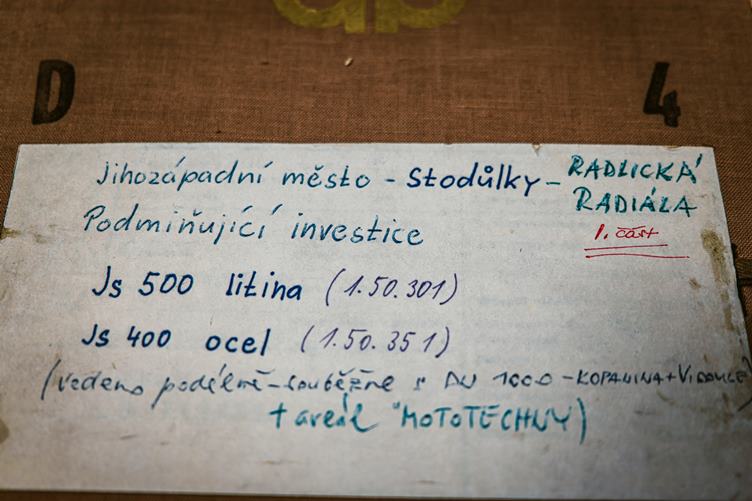 D 4
Jihozápadní město - Stodůlky - RADLICKÁ
RADIÁLA
1. část
Podmiňující investice
Js 500 litina (1.50.301)
Js 400 ocel (1.50.351)
(vedeno podélně-souběžně s DN 1000 - KOPANINA + VIDOULE
+ areál "MOTOTECHNY)